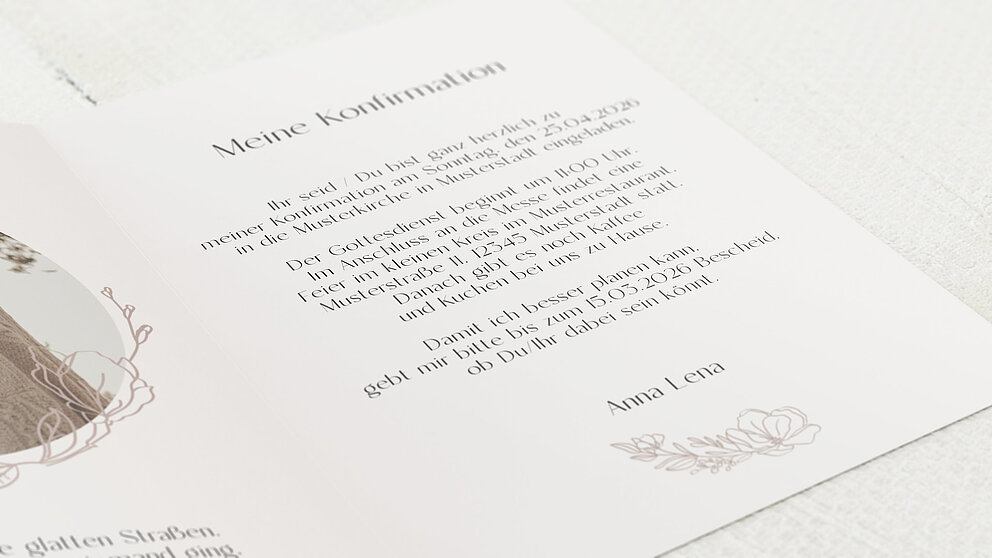 Meine Konfirmation
Ihr seid / Du bist ganz herzlich zu
meiner Konfirmation am Sonntag, den 25.04.2026
in die Musterkirche in Musterstadt eingeladen.
Der Gottesdienst beginnt um 11:00 Uhr.
Im Anschluss an die Messe findet eine
Feier im kleinen Kreis im Musterrestaurant,
Musterstraße 11, 12345 Musterstadt statt.
Danach gibt es noch Kaffee
und Kuchen bei uns zu Hause.
Damit ich besser planen kann,
gebt mir bitte bis zum 15.03.2026 Bescheid,
ob Du/Ihr dabei sein könnt.
Anna Lena
glatten Straßen.
ging.